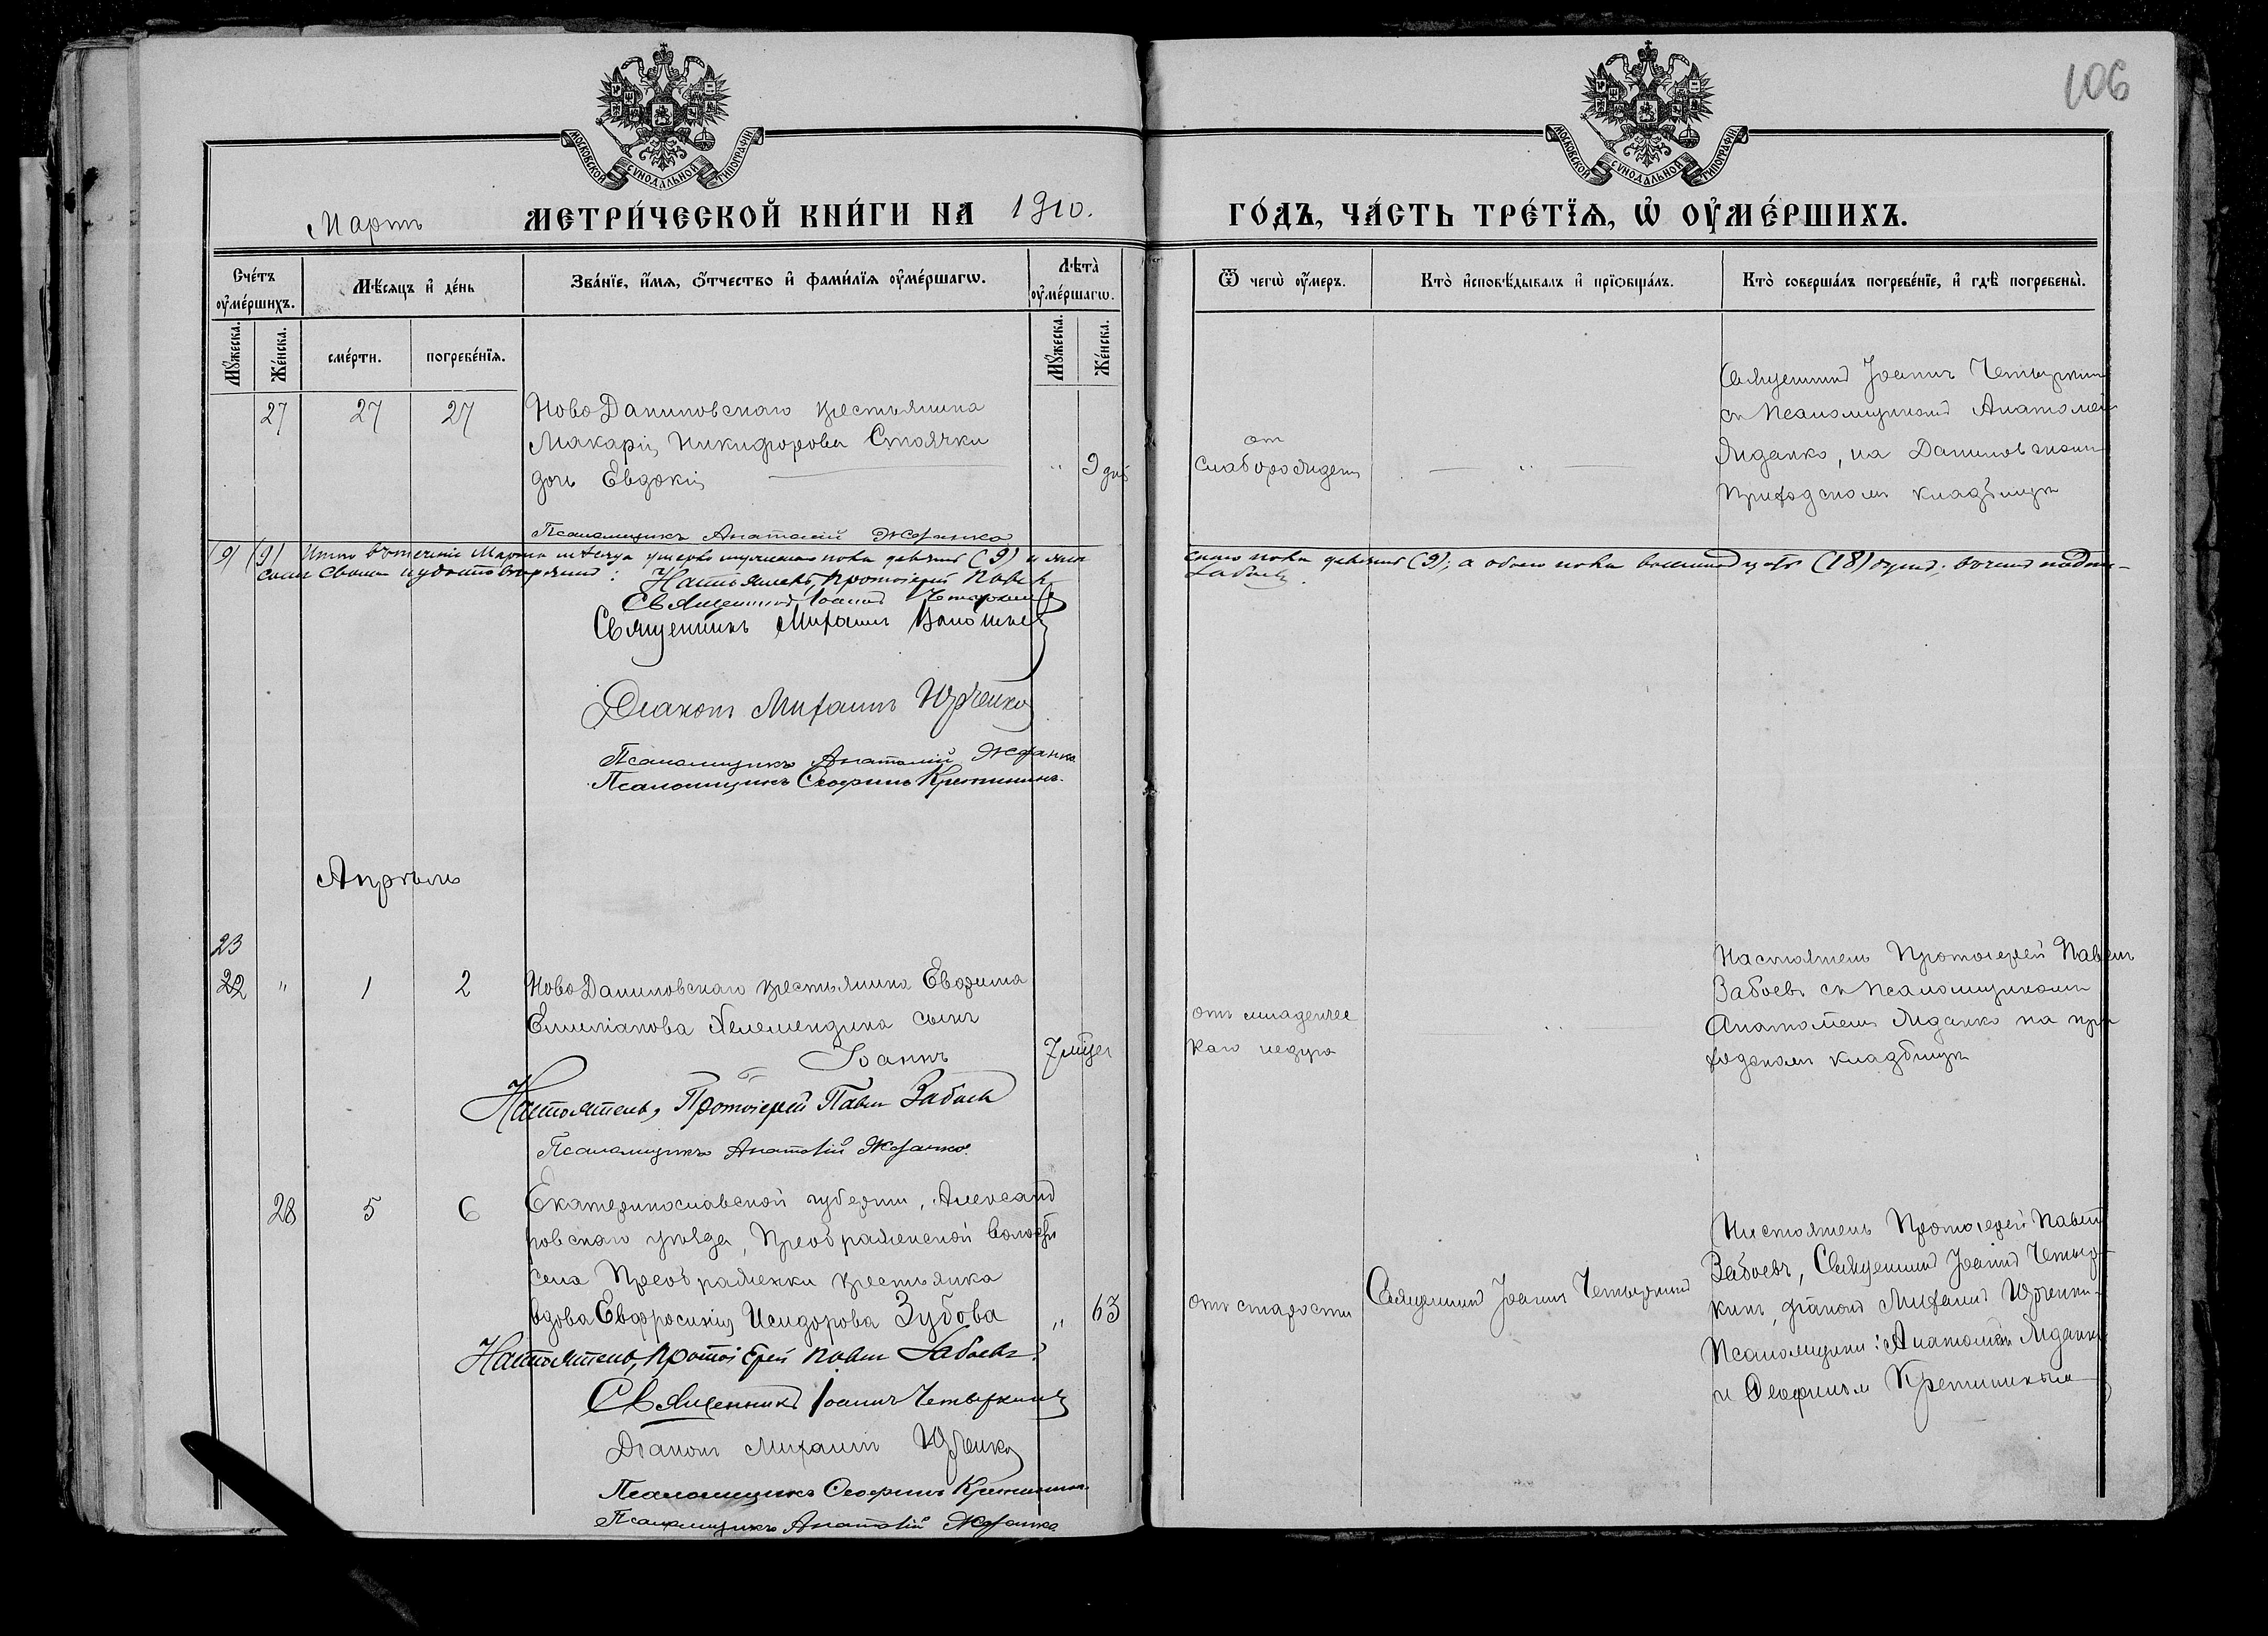 106
МОСКОВСКОЙ СУНОДАЛЬНОЙ ТИПОГРАФІИ
МОСКОВСКОЙ СУНОДАЛЬНОЙ ТИПОГРАФІИ
Мартъ МЕТРИ́ЧЕСКОЙ КНИ́ГИ НА 1910.
ГО́ДЪ, ЧА́СТЬ ТРЕ́ТЇѦ, Ѡ҆ ОУ҆МЕ́РШИХЪ.
Сче́тъ оу҆ме́ршихъ.
Мѣ́сѧцъ и҆ де́нь
Зва́нїе, и҆́мѧ, ѻ҆́тчество и҆ фами́лїѧ оу҆ме́ршагѡ.
Лѣта̀ оу҆ме́ршагѡ.
Ѿ чегѡ̀ оу҆́меръ.
Кто̀ и҆сповѣ́дывалъ и҆ прїѡбща́лъ.
Кто̀ соверша́лъ погребе́нїе, и҆ гдѣ̀ погребены̀.
Мꙋ́жеска.
Же́нска.
сме́рти.
погребе́нїѧ.
Мꙋ́жеска.
Же́нска.
27 27 27 НовоДаниловскаго крестьянина
Макарія Никифорова Стоячки
дочь Евдокія " 9 дн
Псаломщикъ Анатолій Жданко
от слаборожден
— " —
Священник Іоаннъ Четыркин
съ Псаломщиком Анатоліем
Жданко, на Даниловском
приходскомъ кладбищѣ
9) (9) Итого въ теченіе Марта мѣсяца умерло мужескаго пола девять (9) и жен
скаго пола девять (9); а обоего пола восемнадцать (18) душъ; въ чемъ подпи-
сомъ своимъ и удостовѣряемъ: Настоятель, Протоіерей Павелъ
Забоевъ.
Священник Іоаннъ Четыркин
Священникъ Михаилъ
Діаконъ Михаилъ Юрченко
Псаломщикъ Анатолій Жданко
Псаломщикъ Ѳеофилъ Кретининъ.
Апрѣль
23
22 " 1 2 НовоДаниловскаго крестьянина Евфима
Емиліанова сынъ
Іоаннъ 7 мѣсяц
Настоятель, Протоіерей Павелъ Забоевъ
Псаломщикъ Анатолій Жданко.
отъ младенчес
каго недуга
"
Настоятель Протоіерей Павелъ
Забоевъ съ Псаломщикомъ
Анатоліемъ Жданко на при
ходскомъ кладбищѣ
28 5 6 Екатеринославской губерніи, Александ
ровскаго уѣзда, Преображенской волости
села Преображенки крестьянка
вдова Евфросинія Исидорова Зубова " 63
Настоятель, Протоіерей Павелъ Забоевъ.
Священникъ Іоаннъ Четыркинъ
Діаконъ Михаилъ Юрченко
Псаломщикъ Ѳеофилъ Кретининъ
Псаломщикъ Анатолій Жданко
отъ старости
Священник Іоаннъ Четыркинъ
Настоятель Протоіерей Павелъ
Забоевъ, Священник Іоаннъ Четыр-
кинъ, діаконъ Михаилъ Юрченко
Псаломщики: Анатолій Жданко
и Ѳеофилъ Кретининъ